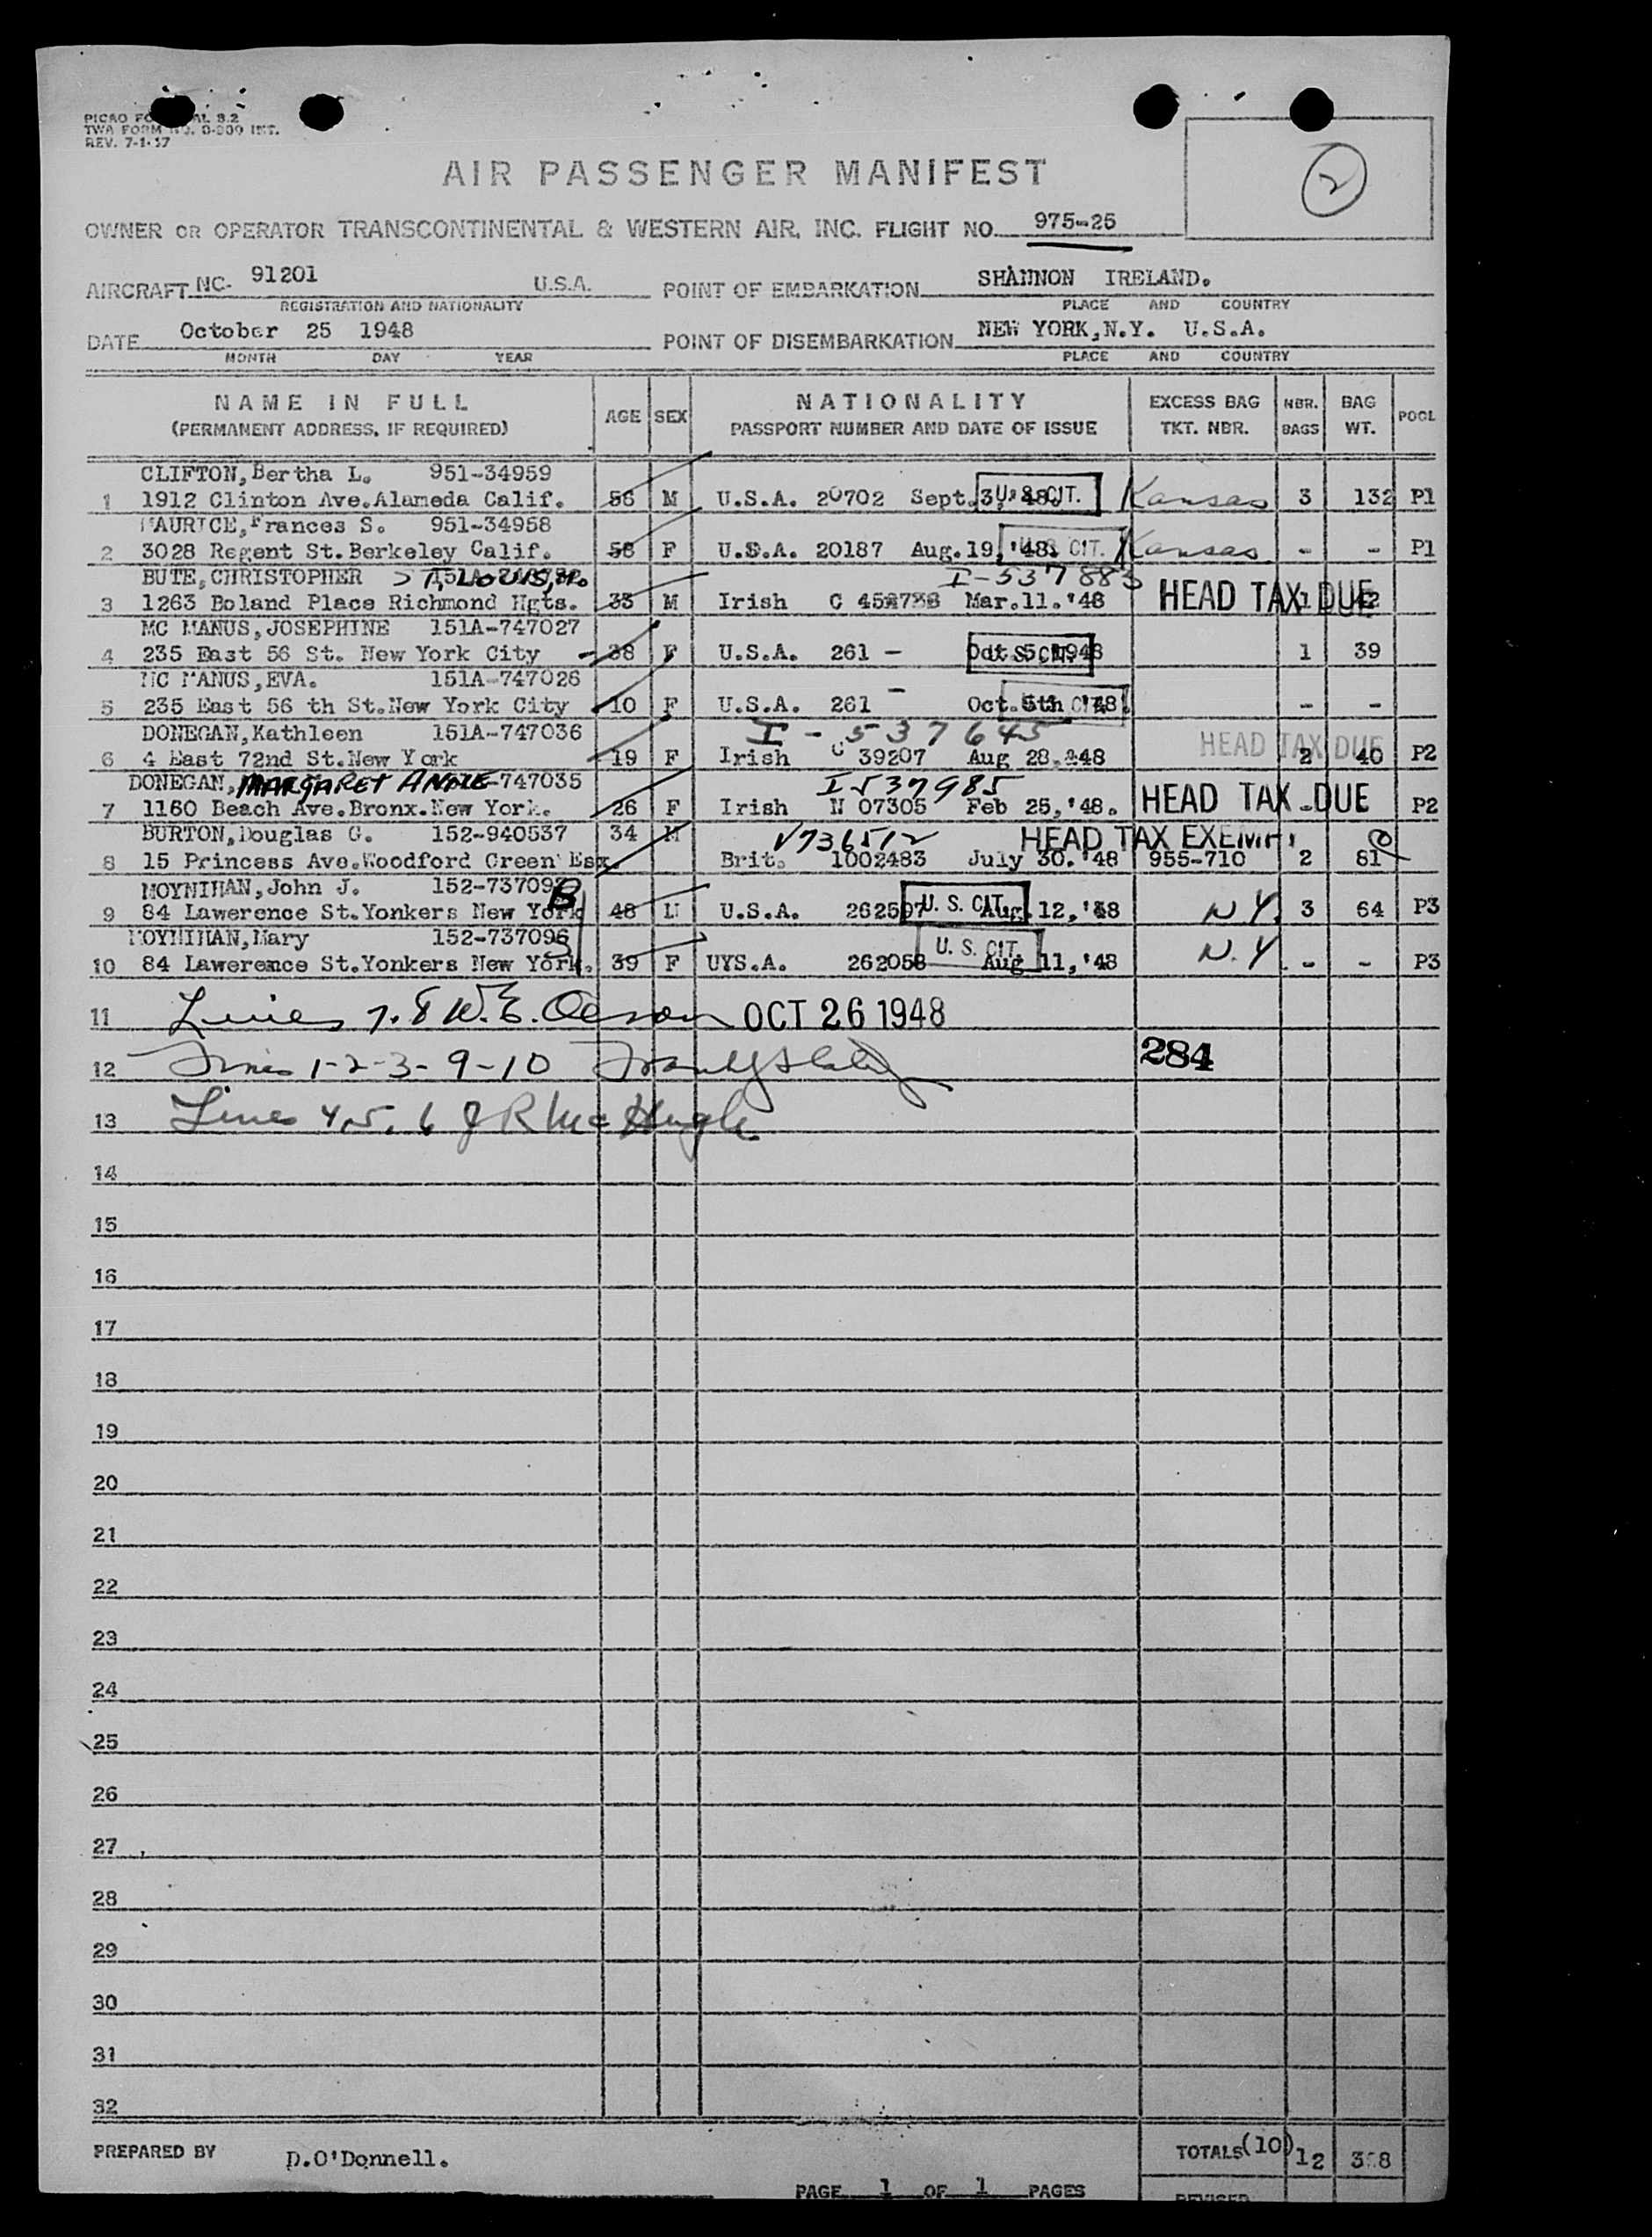 TWA FORM
REV. 7-1-
AIR PASSENGER MANIFEST
2
OWNER OR OPERATOR TRANSCONTINENTAL & WESTERN AIR, INC. FLIGHT NO. 975-25
AIRCRAFT NC- 91201 U.S.A. POINT OF EMBARKATION SHANNON IRELAND.
REGISTRATION AND NATIONALITY PLACE AND COUNTRY
DATE October 25 1948 POINT OF DISEMBARKATION NEW YORK,N.Y. U.S.A.
MONTH DAY YEAR PLACE AND COUNTRY
NAME IN FULL AGE SEX NATIONALITY EXCESS BAG NBR. BAG POOL
(PERMANENT ADDRESS, IF REQUIRED) PASSPORT NUMBER AND DATE OF ISSUE TKT. NBR. BAGS WT.
CLIFTON,Bertha L. 951-34959
1 1912 Clinton Ave.Alameda Calif. 56 M U.S.A. 20702 Sept.3, '48. U. S. CIT. Kansas 3 132 P1
MAURICE,Frances S. 951-34958
2 3028 Regent St.Berkeley Calif. 58 F U.S.A. 20187 Aug.19,'48. U. S. CIT. Kansas - - P1
BUTE,CHRISTOPHER ST, LOUIS, Mo I-537883
3 1263 Boland Place Richmond Hgts. 33 M Irish C Mar.11.'48 HEAD TAX DUE 1
MC MANUS,JOSEPHINE 151A-747027
4 235 East 56 St. New York City 38 F U.S.A. 261 - Oct 5 1948 U. S. CIT. 1 39
MC MANUS,EVA. 151A-747026
5 235 East 56 th St.New York City 10 F U.S.A. 261 - Oct. 5th '48 U. S. CIT. - -
DONEGAN,Kathleen 151A-747036 I-537645
6 4 East 72nd St.New York 19 F Irish C 39207 Aug 28. 48 HEAD TAX DUE 2 40 P2
DONEGAN, MARGARET ANNIE-747035 I537985
7 1160 Beach Ave.Bronx.New York. 26 F Irish N 07305 Feb 25,'48. HEAD TAX DUE - P2
BURTON,Douglas G. 152-940537 34 M V736512 HEAD TAX EXEMPT
8 15 Princess Ave.Woodford Green Esx. Brit. 1002483 July 30.'48 955-710 2 81
MOYNIHAN,John J. 152-737097
9 84 Lawerence St.Yonkers New York 48 M U.S.A. 262507 Aug.12,'48 U. S. CIT. N.Y. 3 64 P3
MOYNIHAN,Mary 152-737096
10 84 Lawerence St.Yonkers New York. 39 F UYS.A. 262058 Aug 11,'48 U. S. CIT. N.Y. - - P3
11 Lines 7. 8 W. E. OCT 26 1948
12 Lines 1-2-3-9-10 284
13 Lines 4, 5, 6 J R McHugh
14
15
16
17
18
19
20
21
22
23
24
25
26
27
28
29
30
31
32
PREPARED BY D.O'Donnell. TOTALS (10) 12
PAGE 1 OF 1 PAGES REVISED